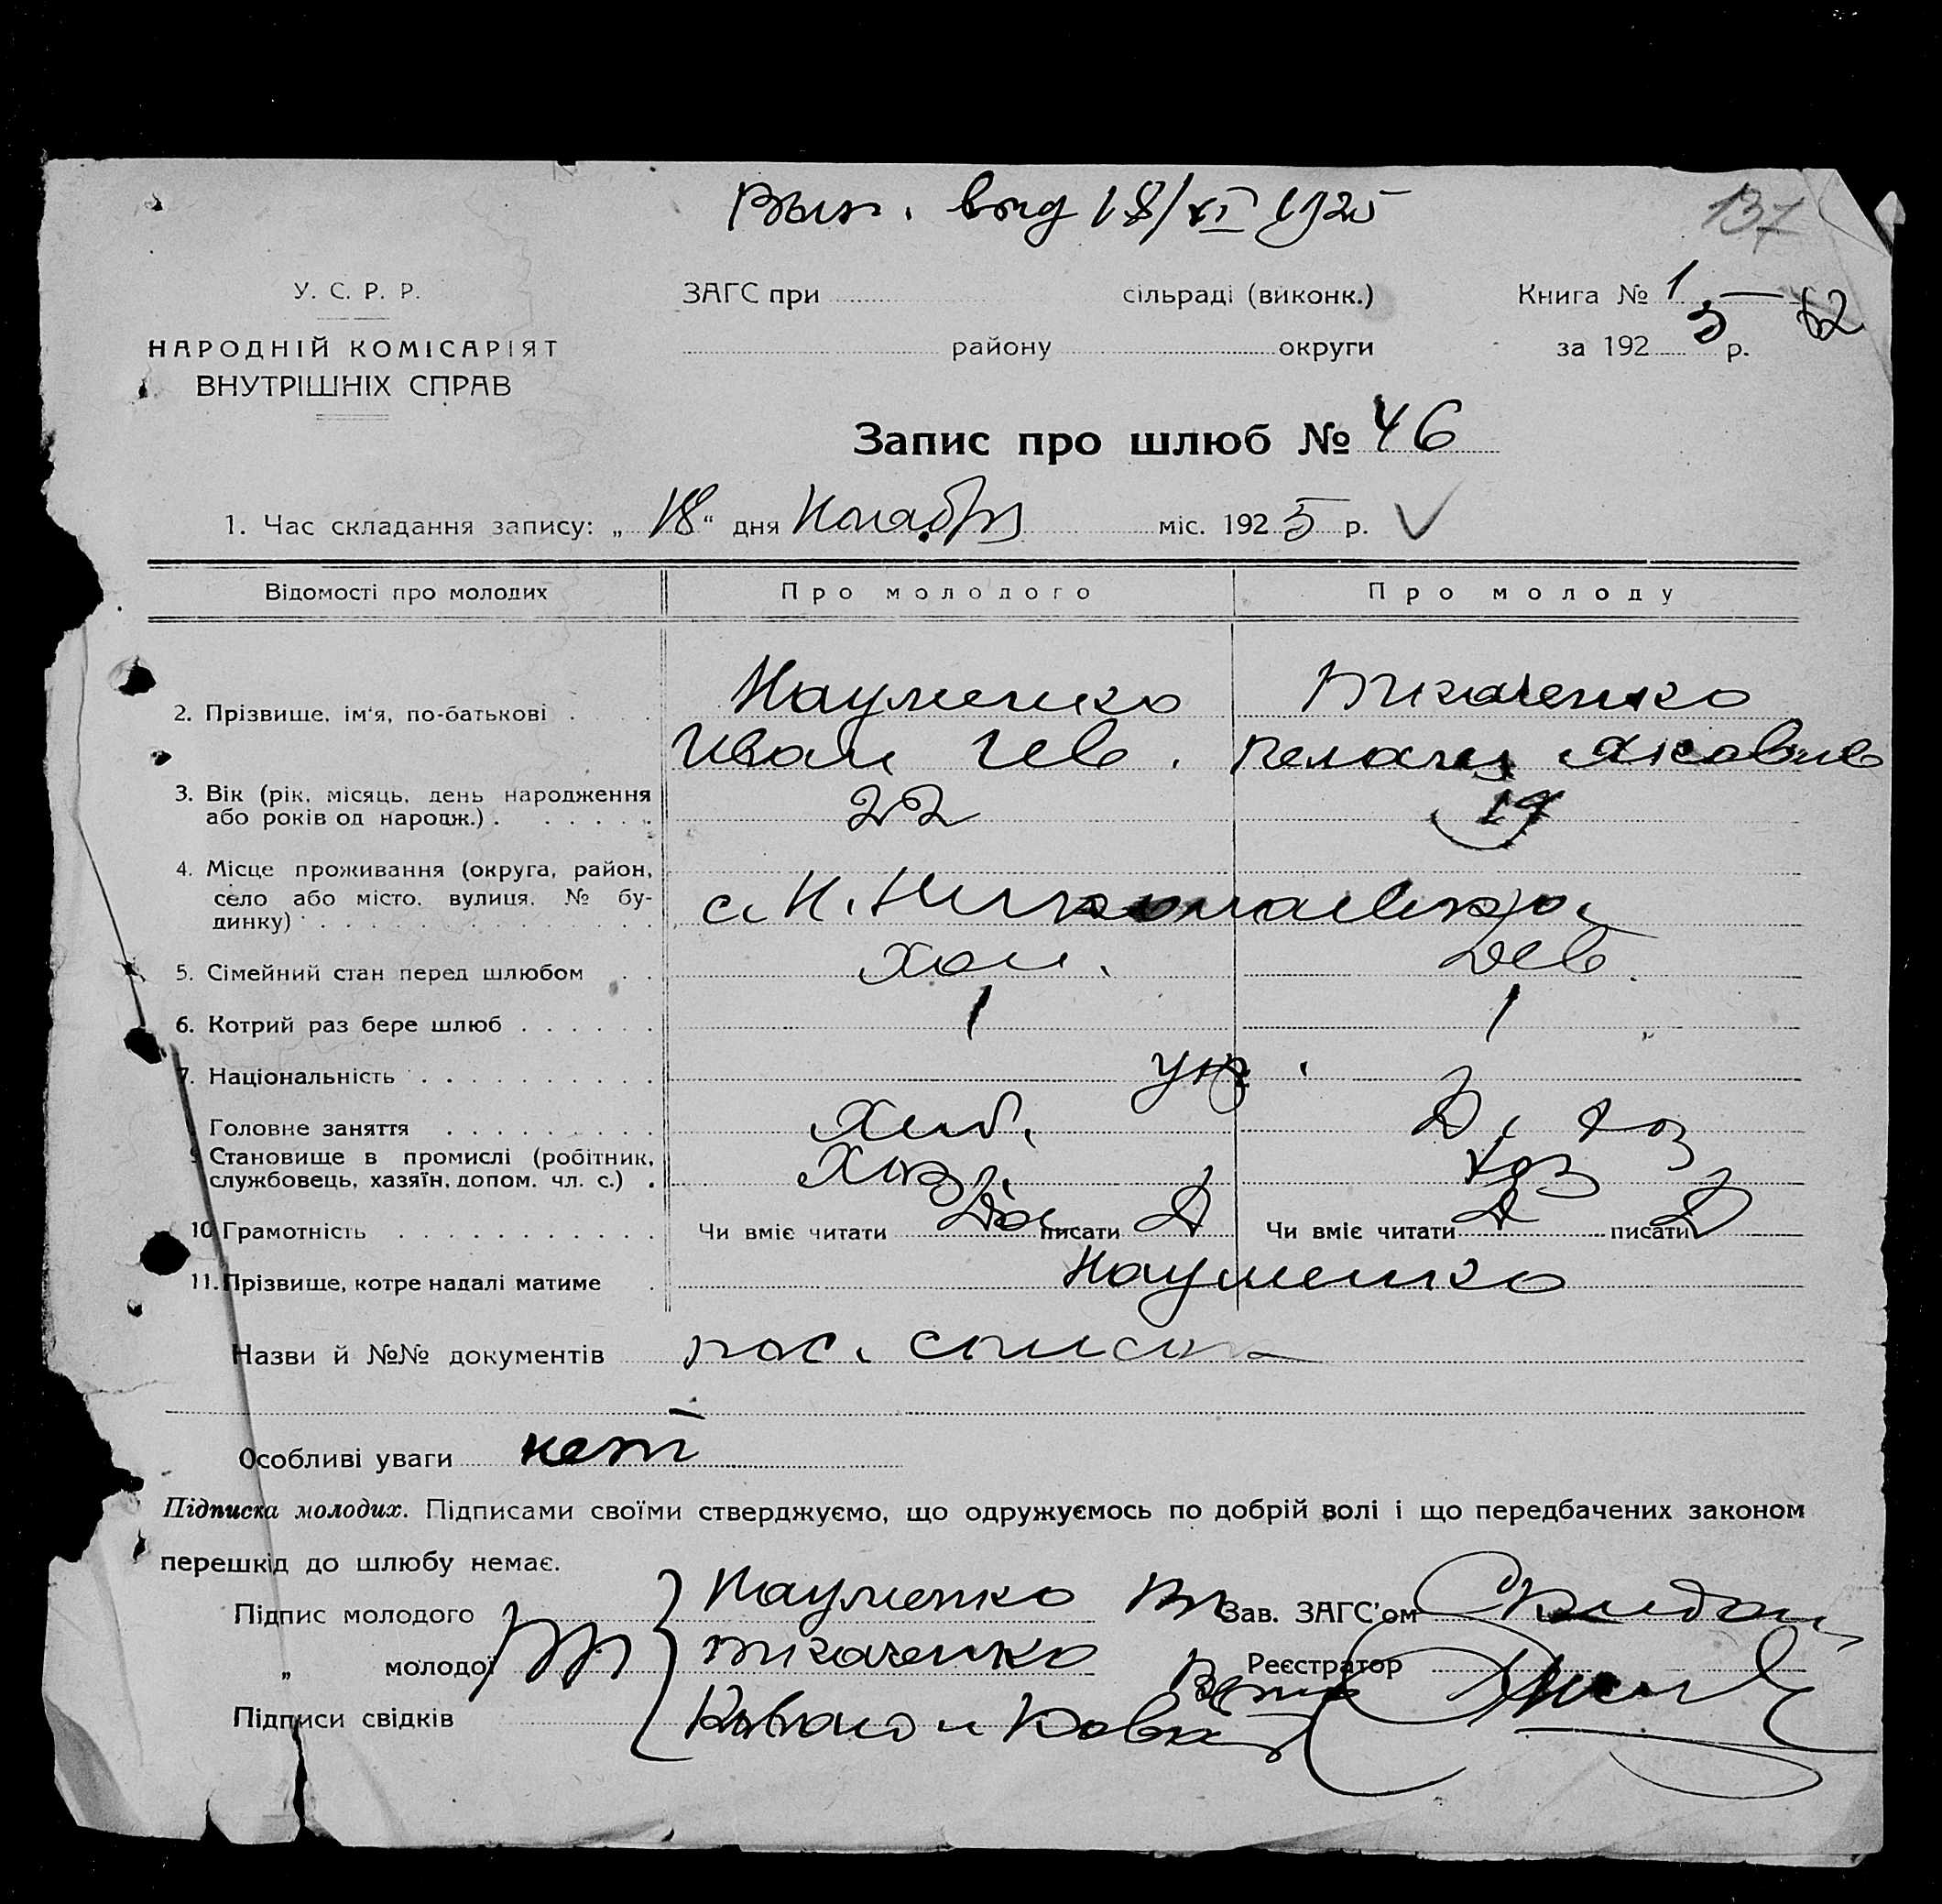 Вып. выд 18/XI 1925
137
У. С. Р. Р.
НАРОДНІЙ КОМІСАРІЯТ
ВНУТРІШНІХ СПРАВ
ЗАГС при сільраді (виконк.)
району округи
Книга № 1 — 62
за 1925 р.
Запис про шлюб № 46
1. Час складання запису: „18“ дня Ноября міс. 1925 р.
Відомості про молодих Про молодого Про молоду
2. Прізвище, ім'я, по-батькові . . Науменко Ткаченко
Иван Иев. Пелагея Яковлев
3. Вік (рік, місяць, день народження
або років од народж.) . . . . . . 22 19
4. Місце проживання (округа, район,
село або місто, вулиця, № бу-
динку) . . . . . . . . . . . . . с. Н. Николаевка
5. Сімейний стан перед шлюбом . . хол. дев.
6. Котрий раз бере шлюб . . . . . . 1 1
7. Національність . . . . . . . . . . укр.
Головне заняття . . . . . . . . . Хлib. Д. хоз
9 Становище в промислі (робітник,
службовець, хазяїн, допом. чл. с.) . Хоз. хоз
10 Грамотність . . . . . . . . . . . Чи вміє читати Да писати Д Чи вміє читати Д писати Д
11. Прізвище, котре надалі матиме . Науменко
Назви й №№ документів пос. список
Особливі уваги нет
Підписка молодих. Підписами своїми стверджуємо, що одружуємось по добрій волі і що передбачених законом
перешкід до шлюбу немає.
Підпис молодого Науменко Зав. ЗАГС'ом
„ молодої Ткаченко Реєстратор
Підписи свідків